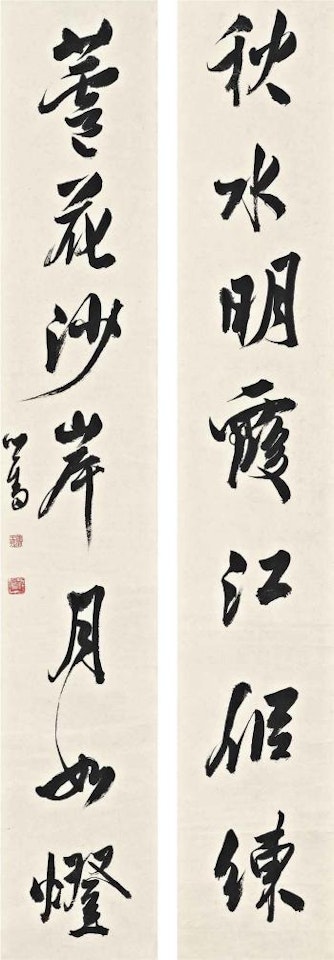 秋水明霞江似練
蘆花沙岸月如燈
心畬